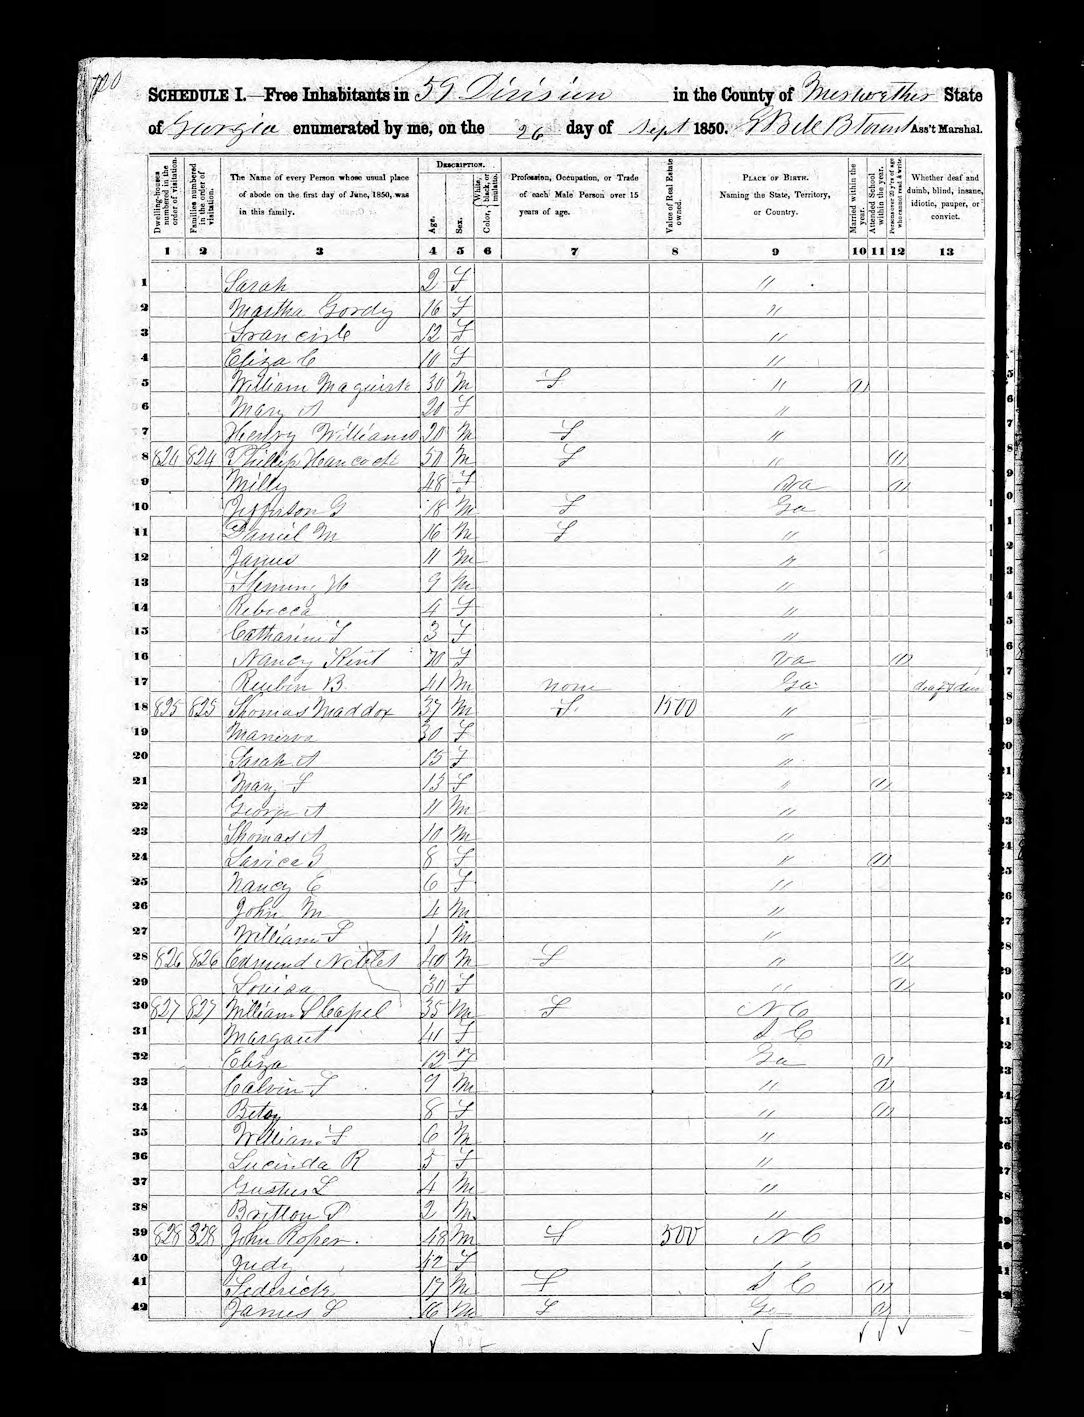 720
SCHEDULE I.—Free Inhabitants in 59 Division in the County of Meriwether State
of Georgia enumerated by me, on the 26 day of Sept 1850. Ass't Marshal.
Dwelling-houses numbered in the order of visitation.
Families numbered in the order of visitation.
The Name of every Person whose usual place of abode on the first day of June, 1850, was in this family.
DESCRIPTION.
Age.
Sex.
Color, White, black, or mulatto.
Profession, Occupation, or Trade of each Male Person over 15 years of age.
Value of Real Estate owned.
PLACE OF BIRTH. Naming the State, Territory, or Country.
Married within the year.
Attended School within the year.
Persons over 20 y'rs of age who cannot read & write.
Whether deaf and dumb, blind, insane, idiotic, pauper, or convict.
1 2 3 4 5 6 7 8 9 10 11 12 13
1 Sarah 2 F "
2 Martha Gordy 16 F "
3 12 F "
4 Eliza C 10 F "
5 William 30 M F " 1
6 Mary A 20 F "
7 Henry Williams 20 M F "
8 824 824 Phillip Hancock 50 M F " 1
9 Milly 48 F Va 1
10 Jefferson G 18 M F Ga
11 Daniel M 16 M F "
12 James 11 M "
13 Fleming H 9 M "
14 Rebecca 4 F "
15 Catharine F 3 F "
16 Nancy Kent 70 F Va 1
17 Reubin B. 41 M none Ga deaf & dum
18 825 825 Thomas Maddox 37 M F 1500 "
19 Manerva 30 F "
20 Sarah A 15 F "
21 Mary F 13 F " 1
22 George A 11 M "
23 Thomas A 10 M "
24 8 F " 1
25 Nancy E 6 F "
26 John M 4 M "
27 William F 1 M "
28 826 826 Edmund 40 M F " 1
29 Louisa 30 F " 1
30 827 827 William 35 M F N C
31 Margaret 41 F S C
32 Eliza 12 F Ga 1
33 Calvin F 9 M " 1
34 Betsy 8 F " 1
35 William F 6 M "
36 Lucinda R 5 F "
37 4 M "
38 Britton P 2 M "
39 828 828 John Roper. 48 M F 500 N C
40 Judy 42 F "
41 Federick 17 M F S C 1
42 James L 16 M F Ga 1